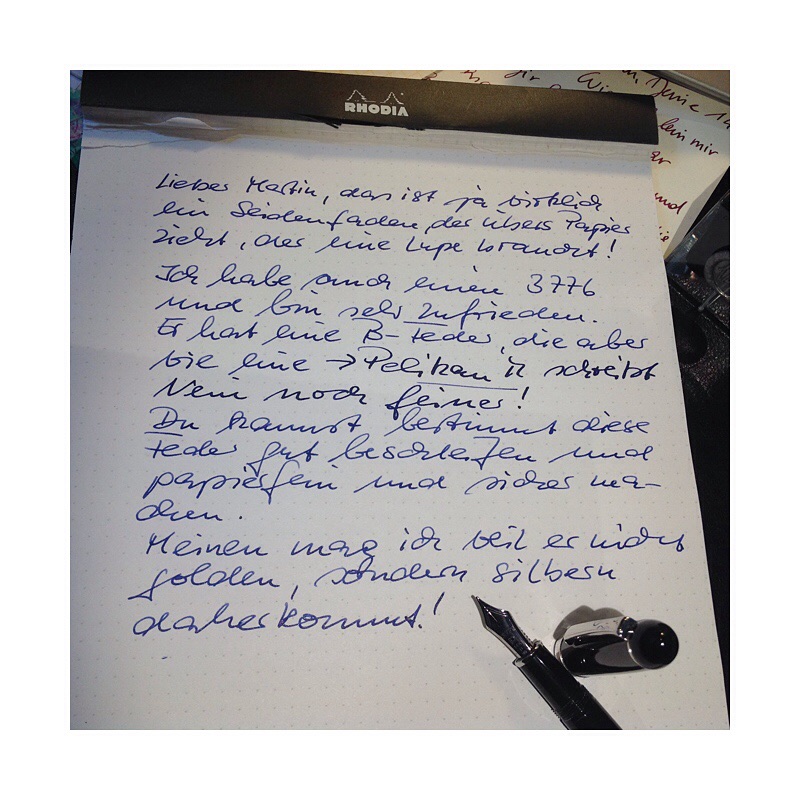 RHODIA
Lieber Martin, das ist ja wirklich
ein Seidenfaden, der übers Papier
zieht, der eine Lupe braucht!
Ich habe auch einen 3776
und bin sehr zufrieden.
Er hat eine B-Feder, die aber
wie eine → Pelikan schreibt
Nein noch feiner!
Du kannst bestimmt diese
Feder gut beschleifen und
papierfein und sicher ma-
chen.
Meinen mag ich weil er nicht
golden, sondern silbern
daherkommt!
Deine 14
mir
und